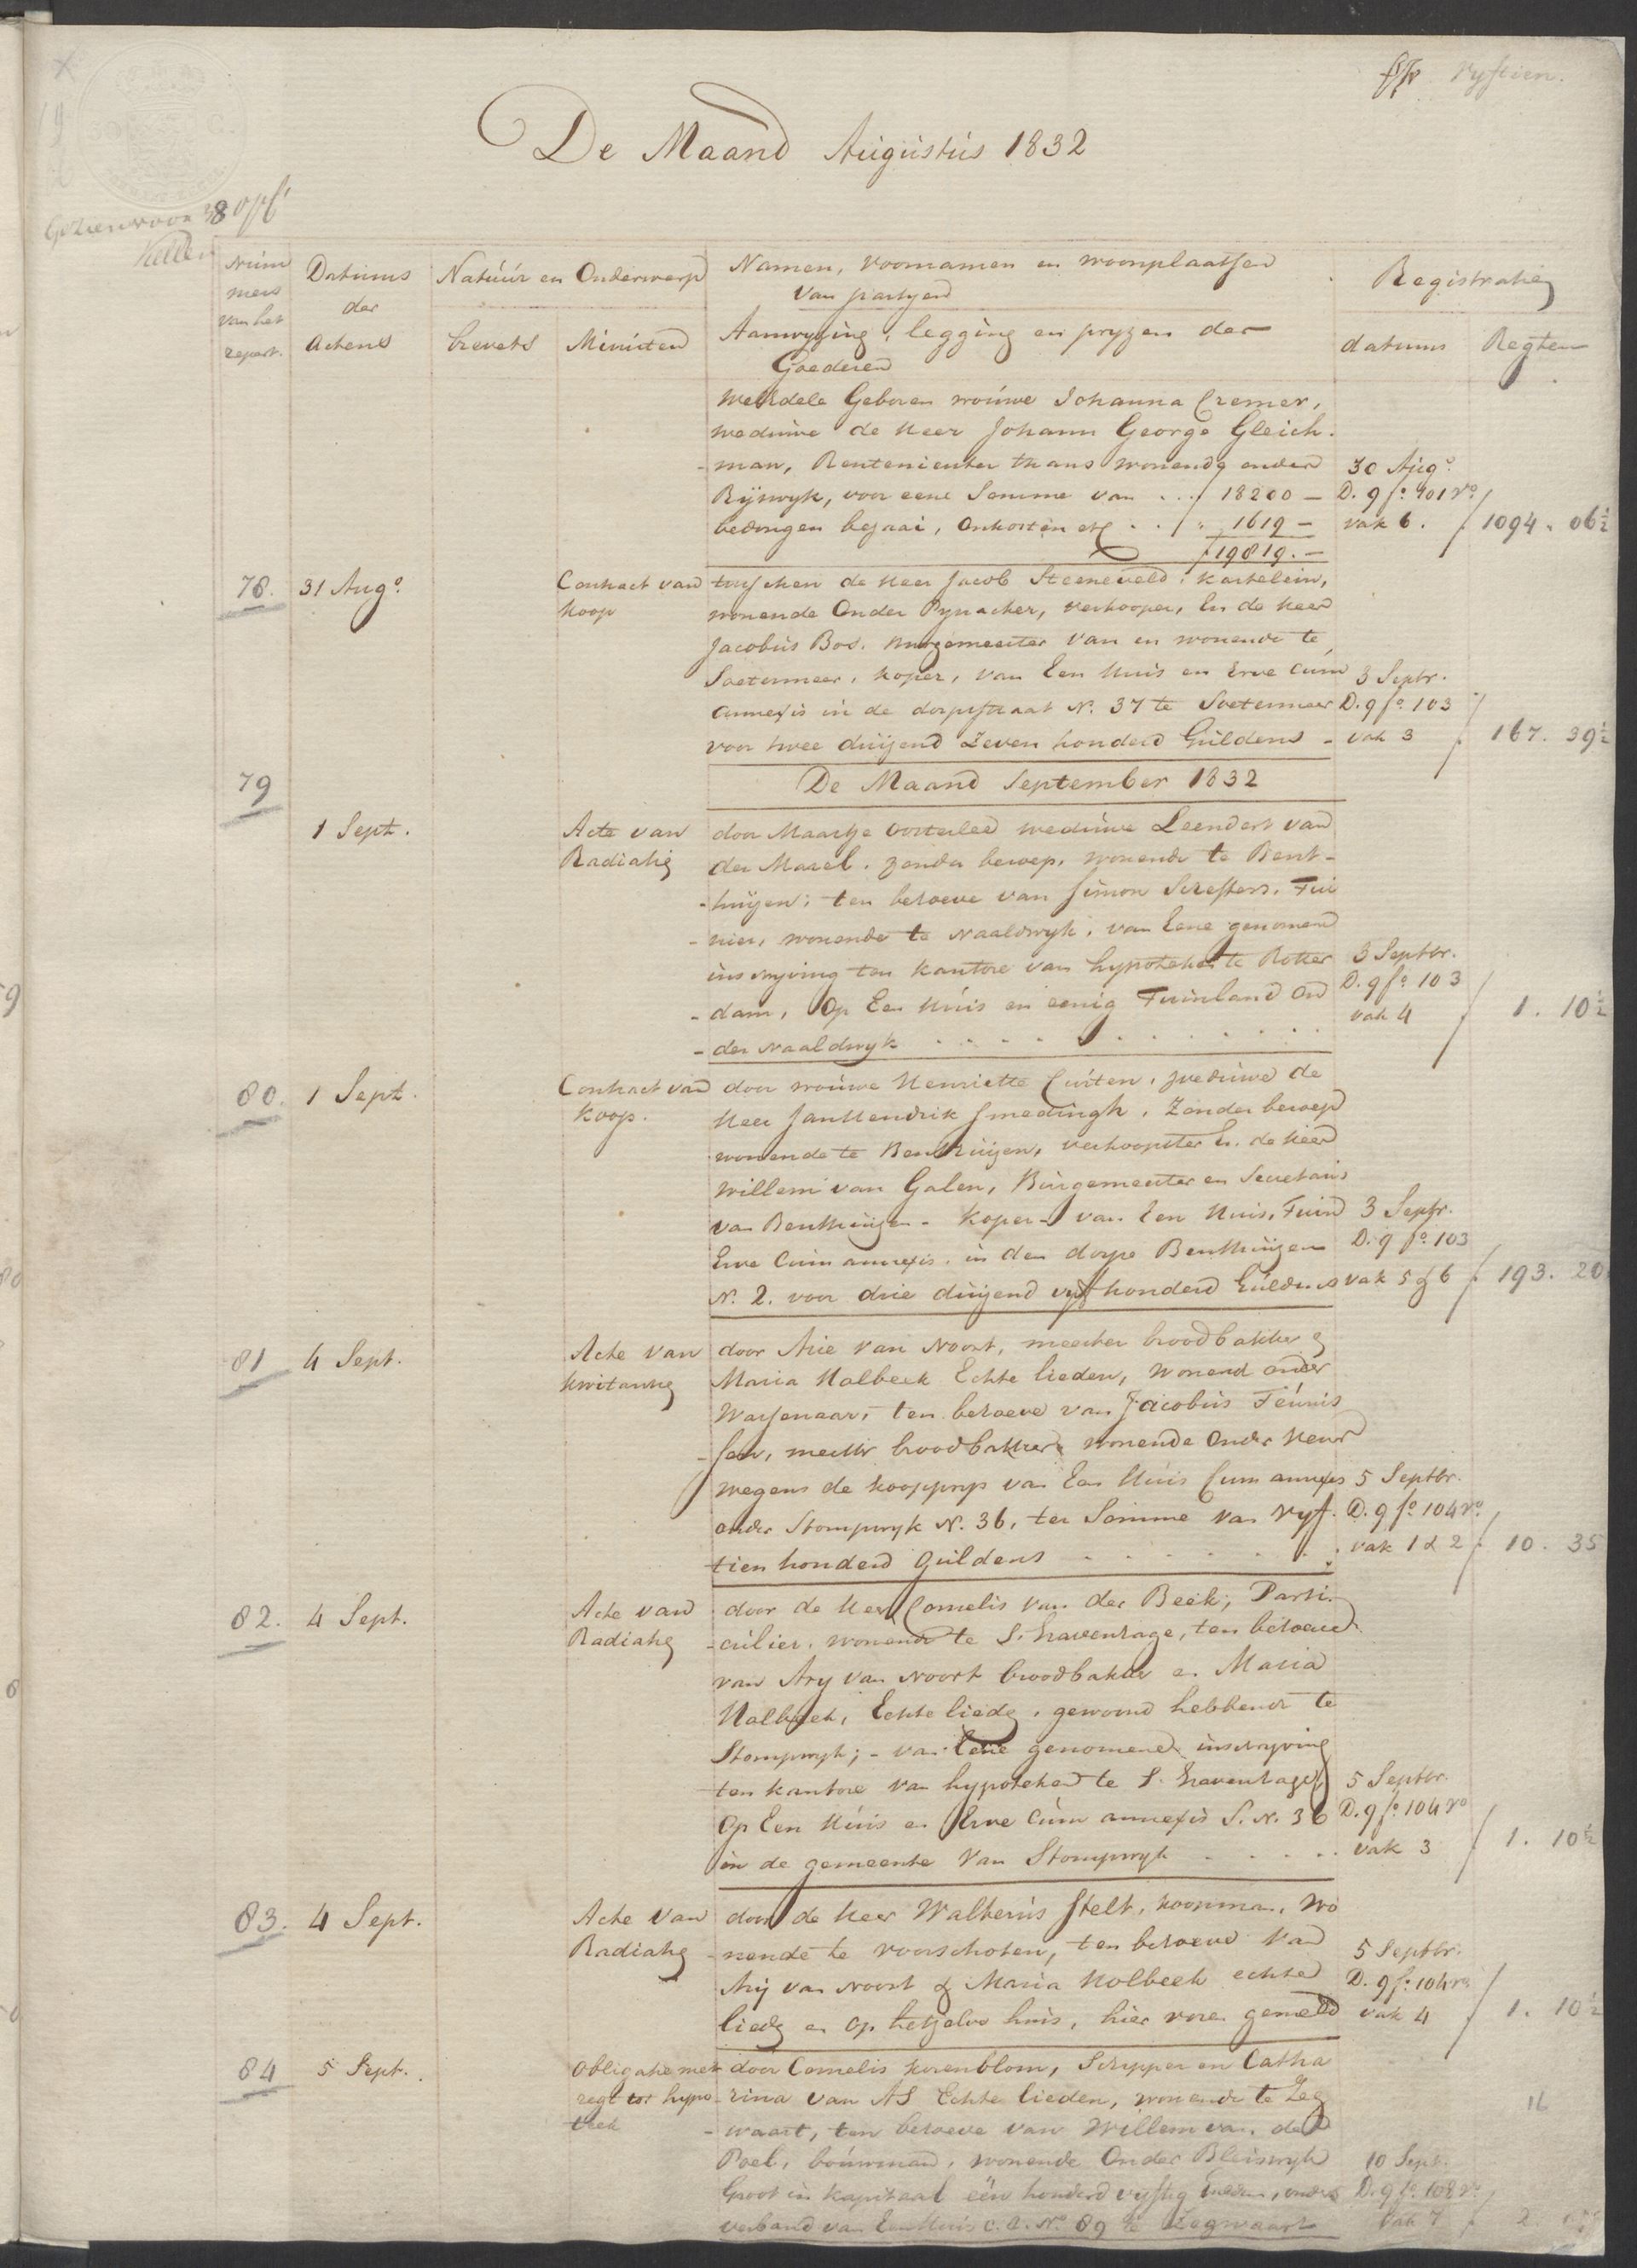 vyftien.
De Maand Augustus 1832
Gezien voor
Num
mers
van het
repert.
Datums
der
Actens
Natuur en Onderwerp
brevets Minuten
Namen, voornamen en woonplaatsen
van partyen
Aanwyzing, legging en pryzen der
Goederen
Registratie
datums Regten
Geboren vrouwe Johanna Cremer,
weduwe de Heer Johann George Gleich-
-man, Rentenierster thans wonende onder
Ryswyk, voor eene Somme van . . ƒ 18200 –
bedongen , onkosten etc . . " 1619 –
ƒ 19819. –
30 Aug.o
D. 9 fo. 101 vo
vak 6. ƒ 1094. 06½
78. 31 Aug.o
Contract van
koop
tusschen de Heer Jacob Steeneveld, Kastelein,
wonende onder Pynacker, verkooper, En de Heer
Jacobus Bos. Burgemeester van en wonende te
Soetermeer, koper, van Een Huis en Erve cum
annexis in de dorpstraat N. 37 te Soetermeer
voor twee duizend Zeven honderd Guldens –
3 Septr.
D. 9 fo. 103
vak 3 ƒ 167. 39½
De Maand September 1832
79
1 Sept.
Acte van
Radiatie
door Maartje Oosterlee weduwe Leendert van
der Marel. zonder beroep, wonende te Bent-
-huizen; ten behoeve van Simon Scheffers. Tui
-nier, wonende te Naaldwyk, van Eene genomene
inschryving ten kantore van hypotheken te Rotter
-dam, Op Een Huis en eenig Tuinland on
-der Naaldwyk . . . . . . . .
3 Septbr.
D. 9 fo. 103
vak 4 ƒ 1. 10½
80. 1 Sept.
Contract van
koop.
door vrouwe Henriette , weduwe de
Heer Jan Hendrik Smedingh, Zonder beroep
wonende te Benthuizen, verkoopster En de Heer
Willem van Galen, Burgemeester en Secretaris
van Benthuizen – koper – van Een Huis, Tuin
Erve cum annexis. in den dorpe Benthuizen
N. 2. voor drie duizend vyfhonderd Guldens
3 Septr.
D. 9 fo. 103
vak 5 & 6 ƒ 193. 20
81 4 Sept.
Acte van
kwitantie
door Arie van Noort, meester broodbakker &
Maria Halbeek Echte lieden, wonend onder
Wassenaar, ten behoeve van Jacobus Teunis
-sen, meester broodbakker wonende onder
wegens de koopprys van Een Huis Cum annexes
onder Stompwyk N. 36, ter Somme van Vyf-
tien honderd Guldens . . . . . .
5 Septbr.
D. 9 fo. 104 vo
vak 1 & 2 ƒ 10. 35
82. 4 Sept.
Acte van
Radiatie
door de Heer Cornelis van der Beek, Parti-
-culier. wonende te S. Gravenhage, ten behoeve
van Ary van Noort broodbakker en Maria
Halbeek, Echte liede, gewoond hebbende te
Stompwyk; – van Eene genomene inschryving
ten kantore van hypotheken te S. Gravenhage,
Op Een Huis en Erve Cum annexis S. N. 36
in de gemeente van Stompwyk . . . . .
5 Septbr.
D. 9 fo. 104 vo
vak 3 ƒ 1. 10½
83. 4 Sept.
Acte van
Radiatie
door de Heer Waltherus Stelt, koopman, Wo
-nende te Voorschoten, ten behoeve van
Arij van Noort & Maria Holbeek echte
liede en op hetzelve huis, hier voren gemeld
5 Septbr.
D. 9 fo. 104 vo
vak 4 ƒ 1. 10½
84 5 Sept.
Obligatie met
regt tot hypo
theek
door Cornelis Korenblom, Schipper en Catha
-rina van AS Echte lieden, wonende te Zeg
-waart, ten behoeve van Willem van der
Poel, bouwman, wonende Onder Bleiswyk
Groot in kapitaal één honderd vyftig Guldens, onder
verband van Een Huis c. a. No. 89 te Zegwaart
10 Sept.
D. 9 fo. 108 vo
vak 7 ƒ 2.
16